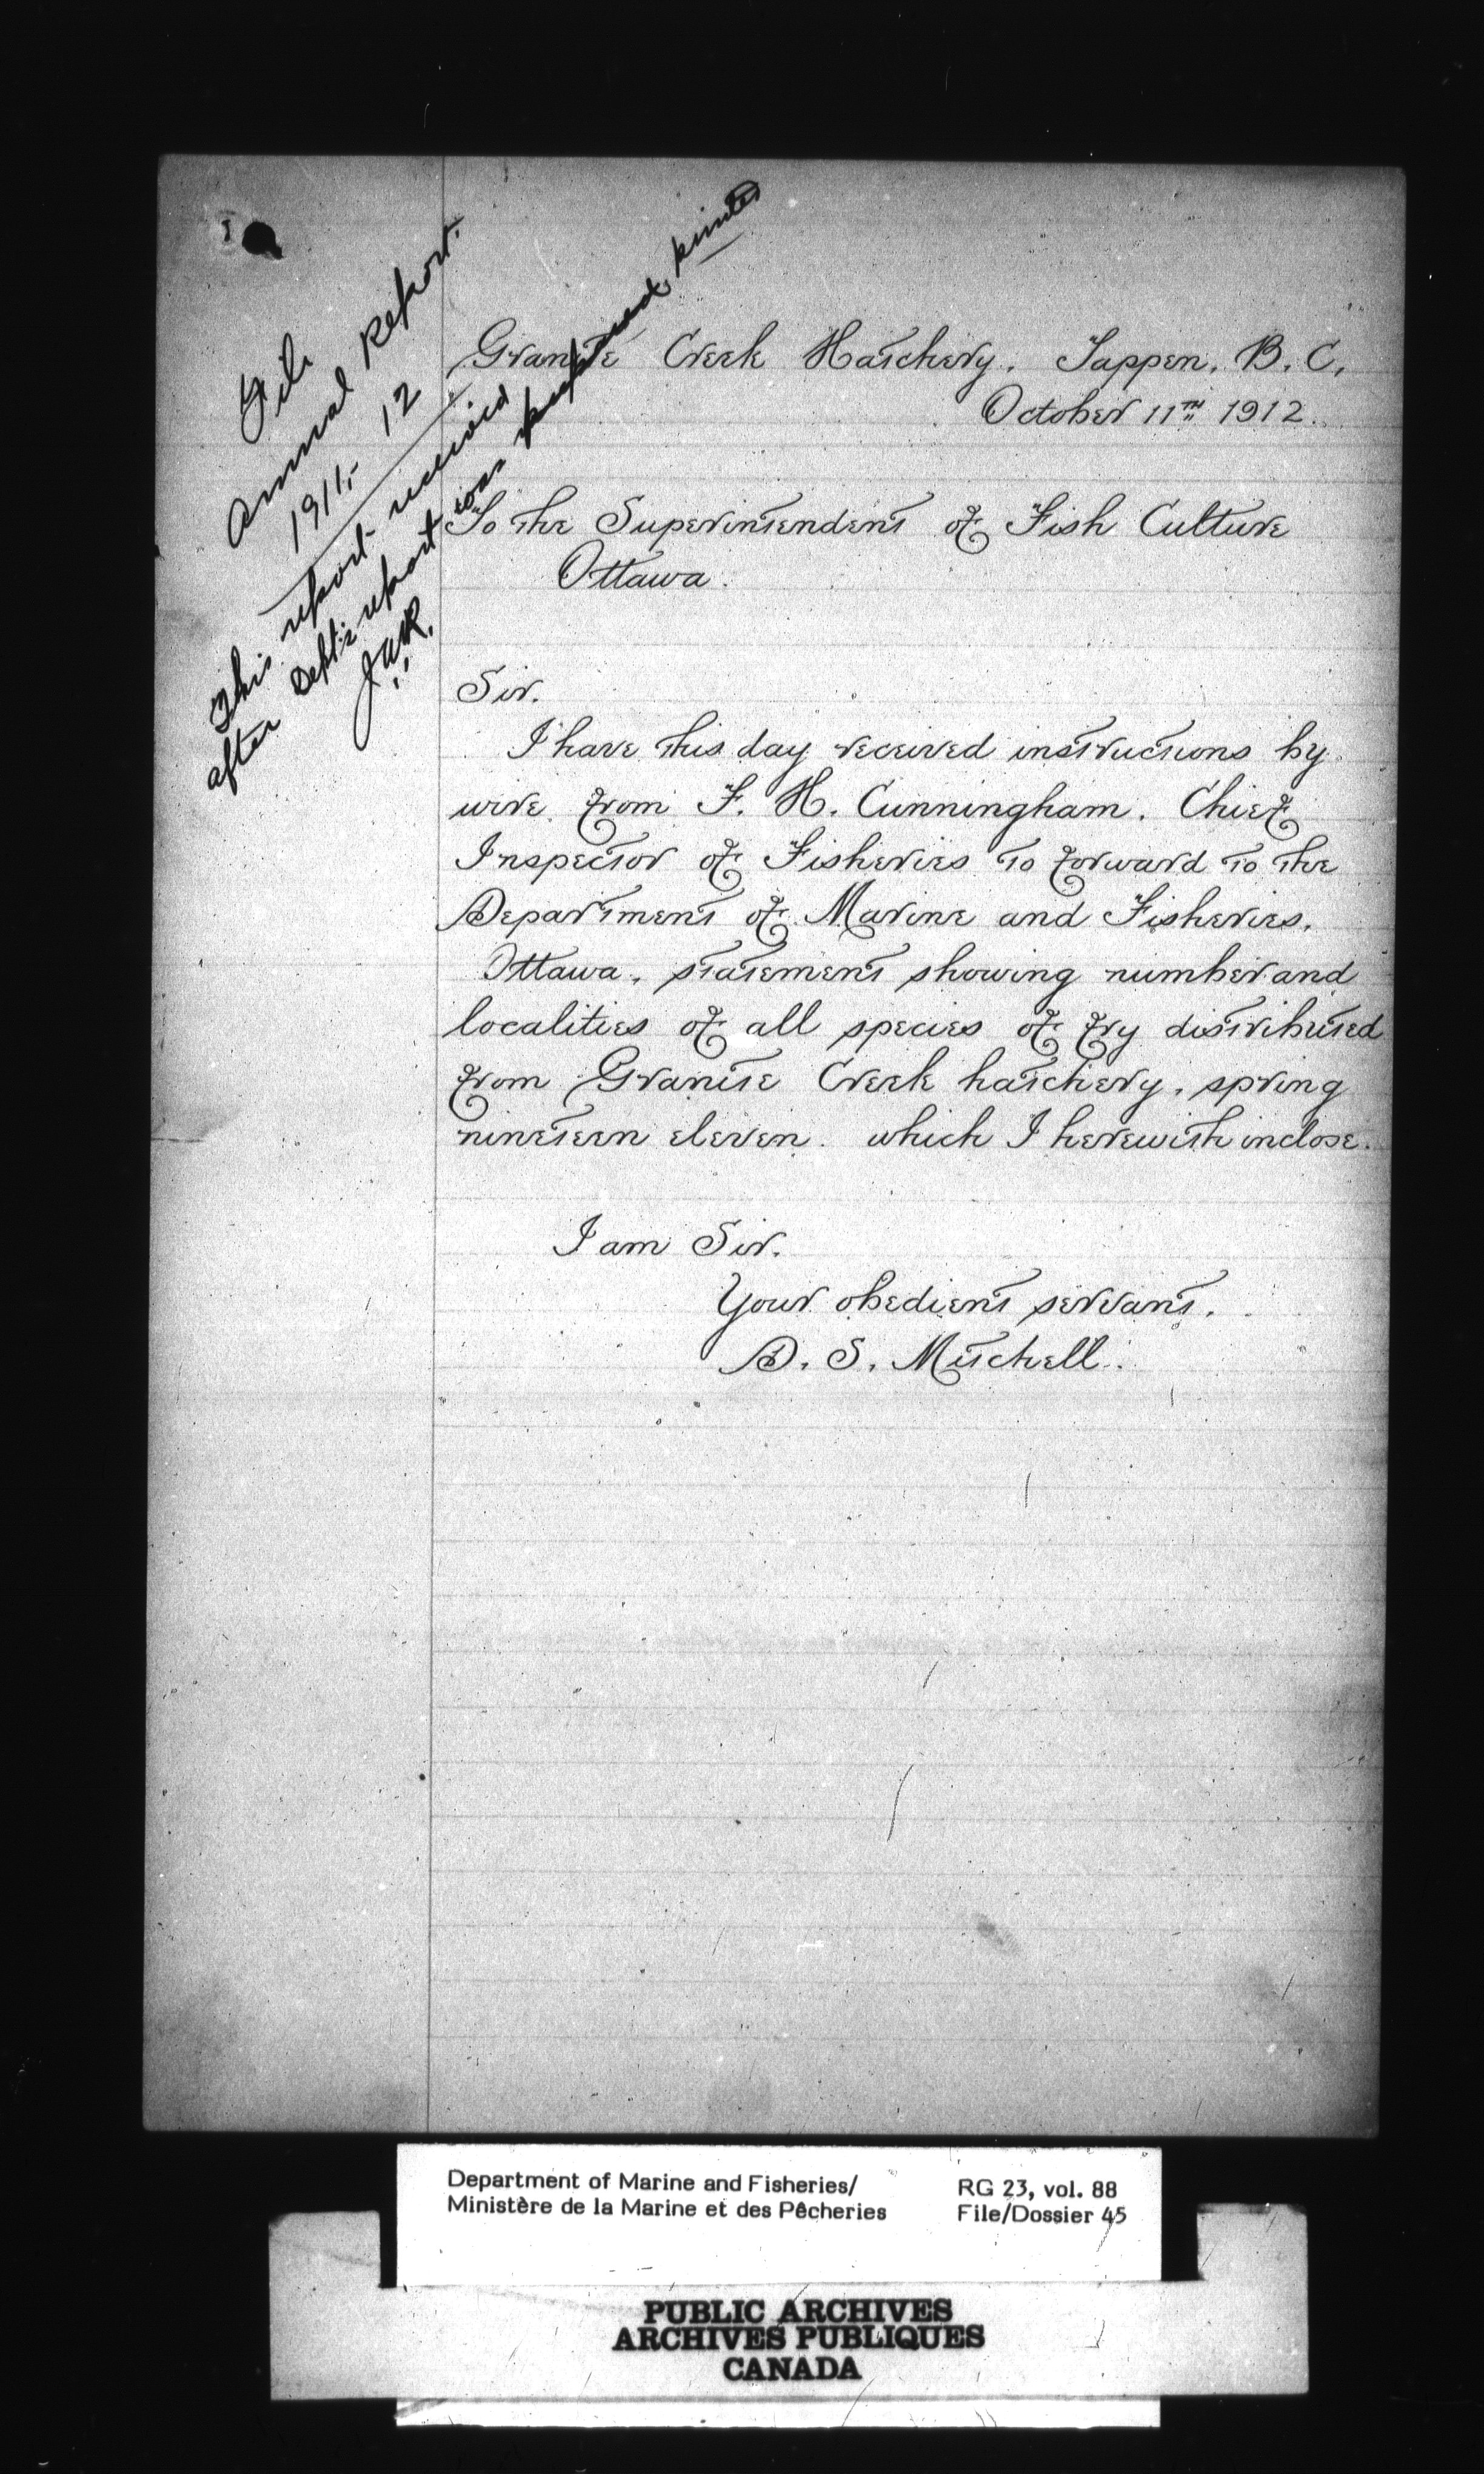 File
Annual Report.
1911,- 12
This report received
after Dept's report was prepared, printed
J.W.R.
Granite Creek Hatchery. Tappen. B. C.
October 11TH 1912.
To the Superintendent of Fish Culture
Ottawa.
Sir.
I have this day received instructions by
wire from F. H. Cunningham. Chief
Inspector of Fisheries to forward to the
Department of Marine and Fisheries.
Ottawa. statement showing number and
localities of all species of fry distributed
from Granite Creek hatchery. spring
nineteen eleven. which I herewith inclose.
I am Sir.
Your obedient servant.
D. S. Mitchell.
Department of Marine and Fisheries/
Ministère de la Marine et des Pêcheries
RG 23, vol. 88
File/Dossier 45
PUBLIC ARCHIVES
ARCHIVES PUBLIQUES
CANADA